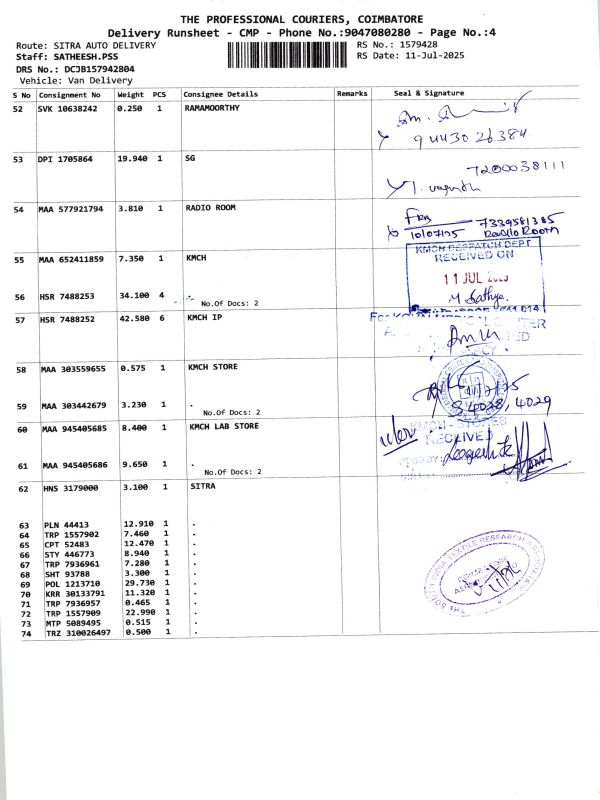 THE PROFESSIONAL COURIERS, COIMBATORE
Delivery Runsheet - CMP - Phone No.:9047080280 - Page No.:4
Route: SITRA AUTO DELIVERY RS No.: 1579428
Staff: SATHEESH.PSS RS Date: 11-Jul-2025
DRS No.: DCJB157942804
Vehicle: Van Delivery
S No Consignment No Weight PCS Consignee Details Remarks Seal & Signature
52 SVK 10638242 0.250 1 RAMAMOORTHY
9443026384
53 DPI 1705864 19.940 1 SG 7200038111
54 MAA 577921794 3.810 1 RADIO ROOM
7339581385
10/07/25 Radio Room
KMCH DESPATCH DEPT
55 MAA 652411859 7.350 1 KMCH RECEIVED ON
11 JUL 2025
56 HSR 7488253 34.100 4 M. Sathya
No.Of Docs: 2
57 HSR 7488252 42.580 6 KMCH IP
58 MAA 303559655 0.575 1 KMCH STORE
59 MAA 303442679 3.230 1 . 4028, 4029
No.Of Docs: 2
60 MAA 945405685 8.400 1 KMCH LAB STORE KMCH - STORES
RECEIVED
61 MAA 945405686 9.650 1 .
No.Of Docs: 2
62 HNS 3179000 3.100 1 SITRA
63 PLN 44413 12.910 1 .
64 TRP 1557902 7.460 1 .
65 CPT 52483 12.470 1 .
66 STY 446773 8.940 1 .
67 TRP 7936961 7.280 1 .
68 SHT 93788 3.300 1 .
69 POL 1213710 29.730 1 .
70 KRR 30133791 11.320 1 .
71 TRP 7936957 0.465 1 .
72 TRP 1557909 22.990 1 .
73 MTP 5089495 0.515 1 .
74 TRZ 310026497 0.500 1 .
THE SOUTH INDIA TEXTILE RESEARCH ASSOCIATION